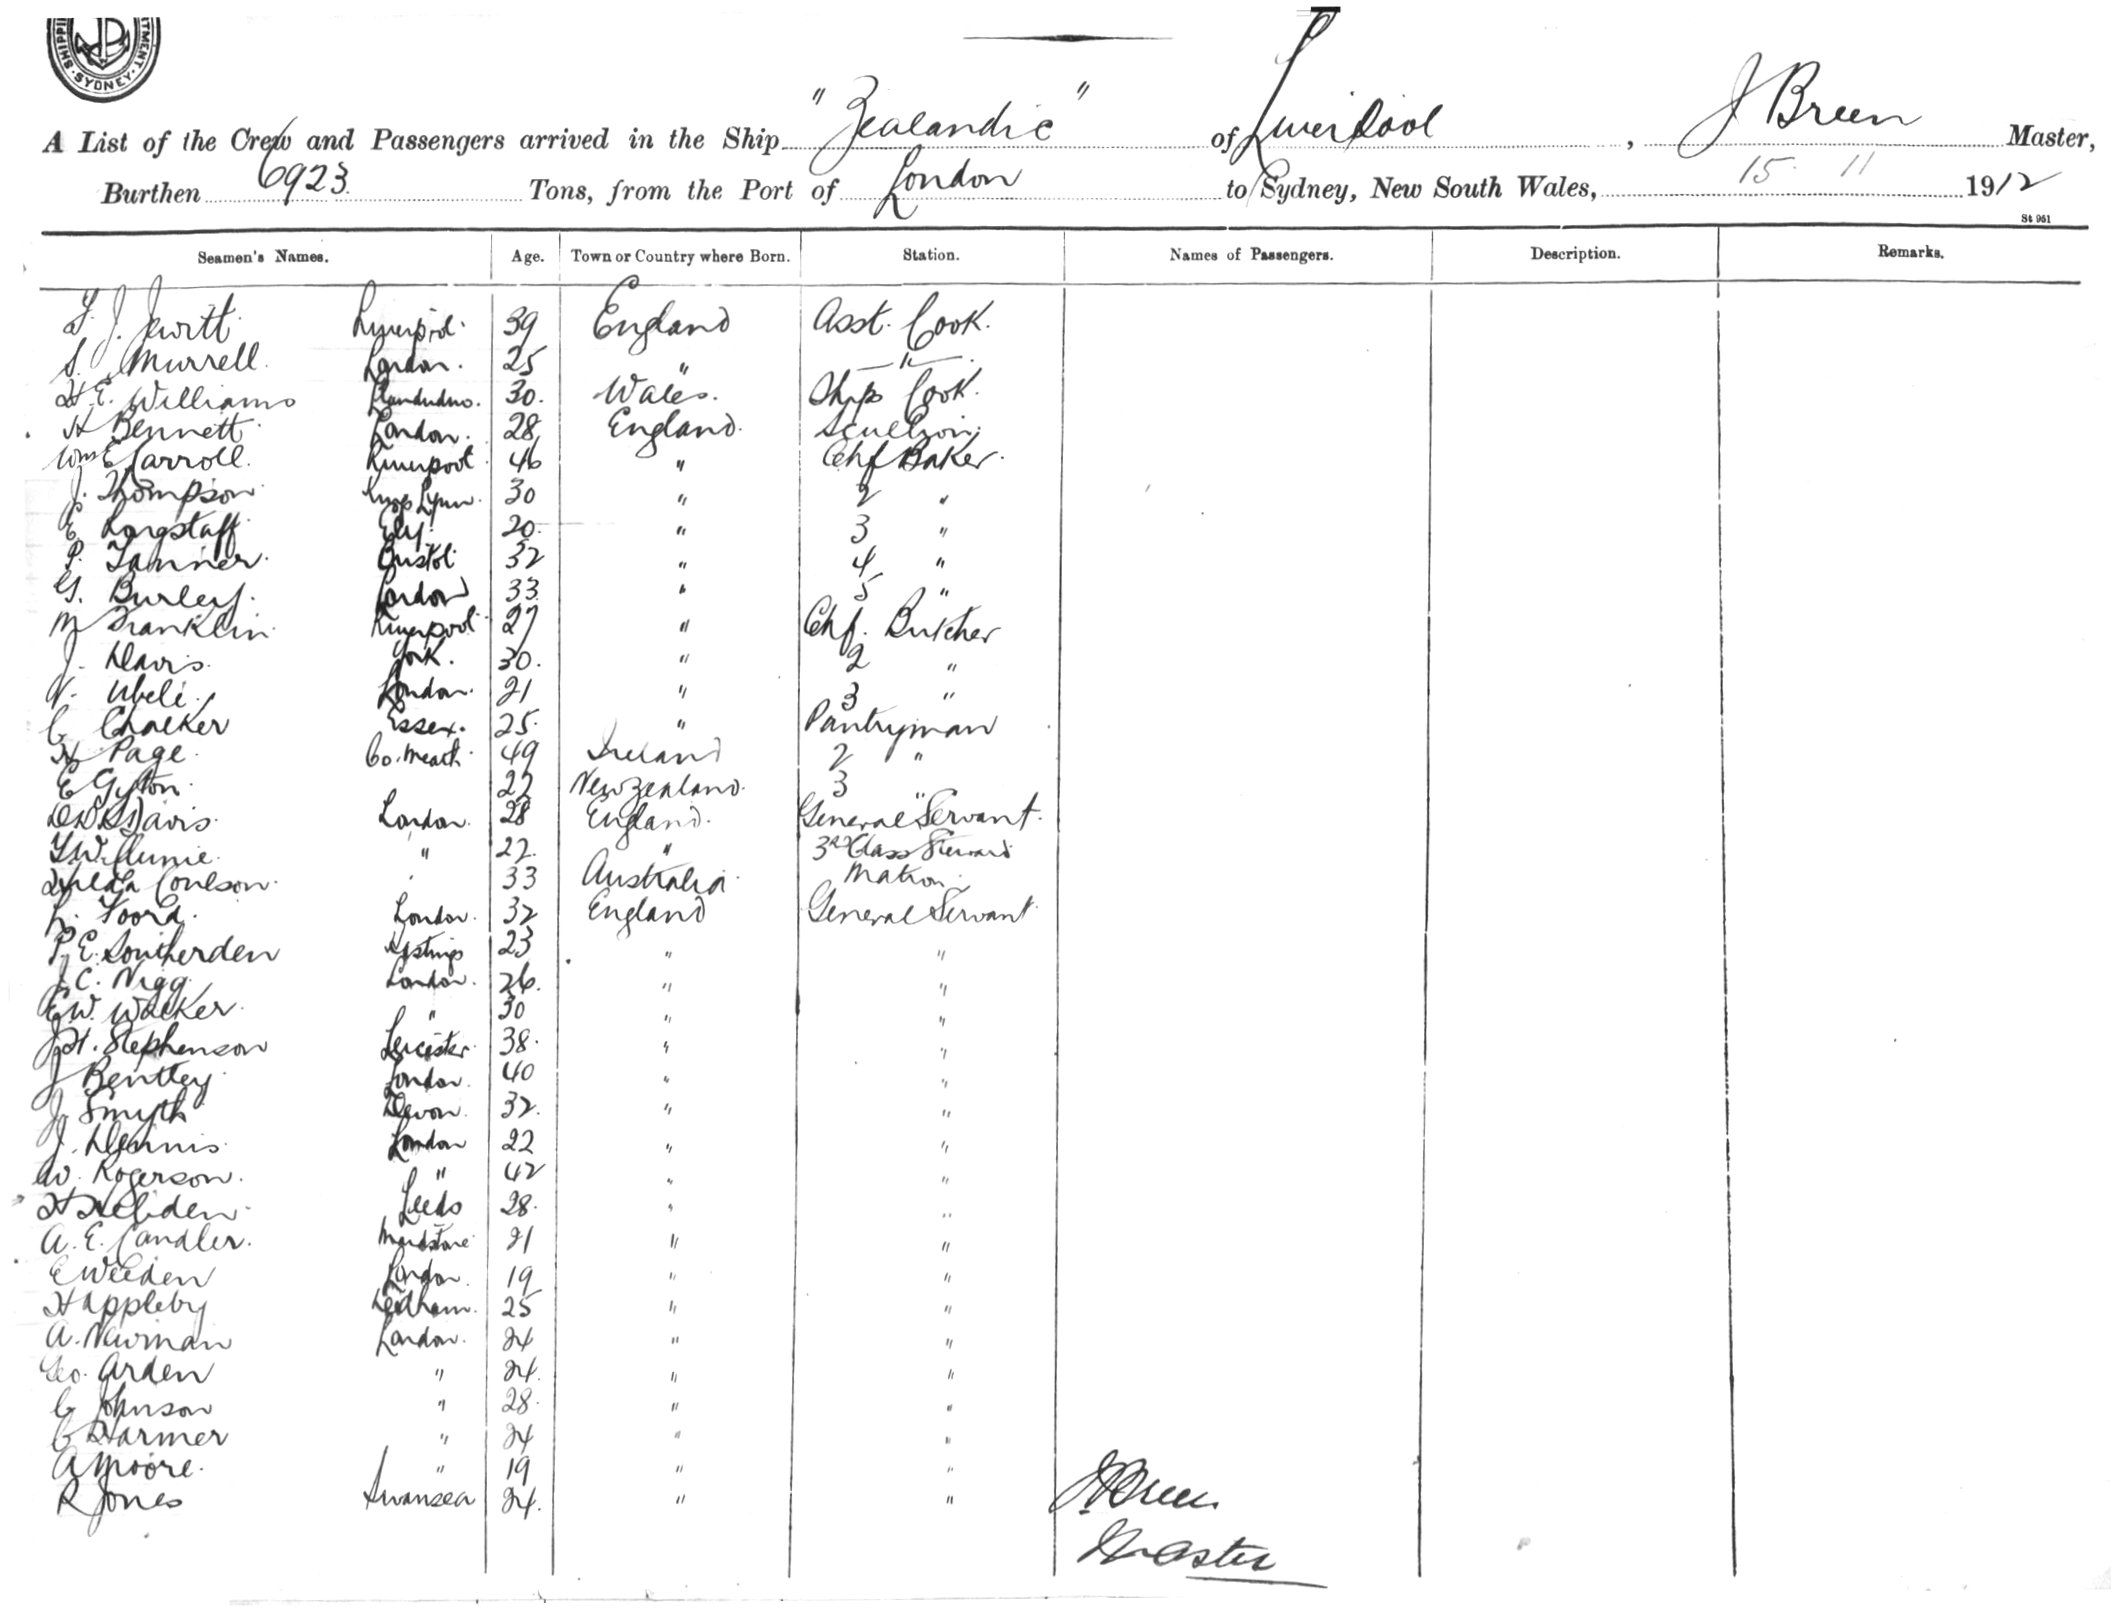 SHIPPI TMENT. SYDNEY.
A List of the Crew and Passengers arrived in the Ship "Zealandic" of Liverpool, J Breen Master,
Burthen 6923 Tons, from the Port of London to Sydney, New South Wales, 15 11 1912
St 961
Seamen's Names. Age. Town or Country where Born. Station. Names of Passengers. Description. Remarks.
J. Jewitt Liverpool. 39 England Asst. Cook.
S. Murrell. London. 25 " — " —
H.E. Williams Llandudno. 30. Wales. Ships Cook.
H Bennett London. 28 England. Scullion.
Wm E Carroll. Liverpool 46 " Chf Baker.
J. Thompson Kings Lynn. 30 " 2 "
E Longstaff Ely. 20. " 3 "
P. Tanner. Bristol 32 " 4 "
G. Burley. London 33 " 5 "
M Franklin Liverpool 27 " Chf. Butcher
J. Davis. York. 30. " 2 "
V. Ubele. London. 21 " 3 "
C Chalker Essex. 25. " Pantryman
H Page. Co. Meath 49 Ireland 2 "
E Gyton. 22 New Zealand. 3 "
Davis. London. 28 England. General Servant.
" 22. " 3rd Class Steward
Hilda Coulson. 33 Australia. Matron.
L. Foord. London. 32 England General Servant
P.E. Southerden Hastings 23 " "
J.C. Nigg. London. 26. " "
E.W. Walker. " 30 " "
J.H. Stephenson Leicester 38. " "
J Bentley London. 40 " "
J Smyth Devon. 32. " "
J. Dennis. London 22 " "
W. Rogerson. " 42 " "
H Hebden. Leeds 28. " "
A. E. Candler. Maidstone 21 " "
E Weeden London. 19 " "
H Appleby Dedham. 25 " "
A. Newman London. 24 " "
Geo. Arden " 24. " "
C Johnson " 28. " "
C Harmer " 24 " "
A Moore. " 19 " "
R Jones Swansea 24. " " J Breen
Master